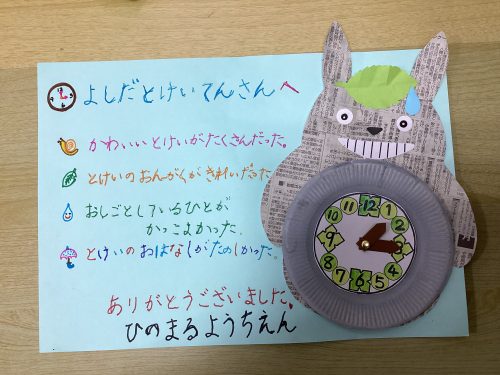 よしだとけいてんさんへ
かわいいとけいがたくさんだった。
とけいのおんがくがきれいだった
おしごとしているひとが
かっこよかった。
とけいのおはなしがたのしかった。
ありがとうございました。
ひのまるようちえん
11 12 1
10 2
9 3
8 4
7 6 5